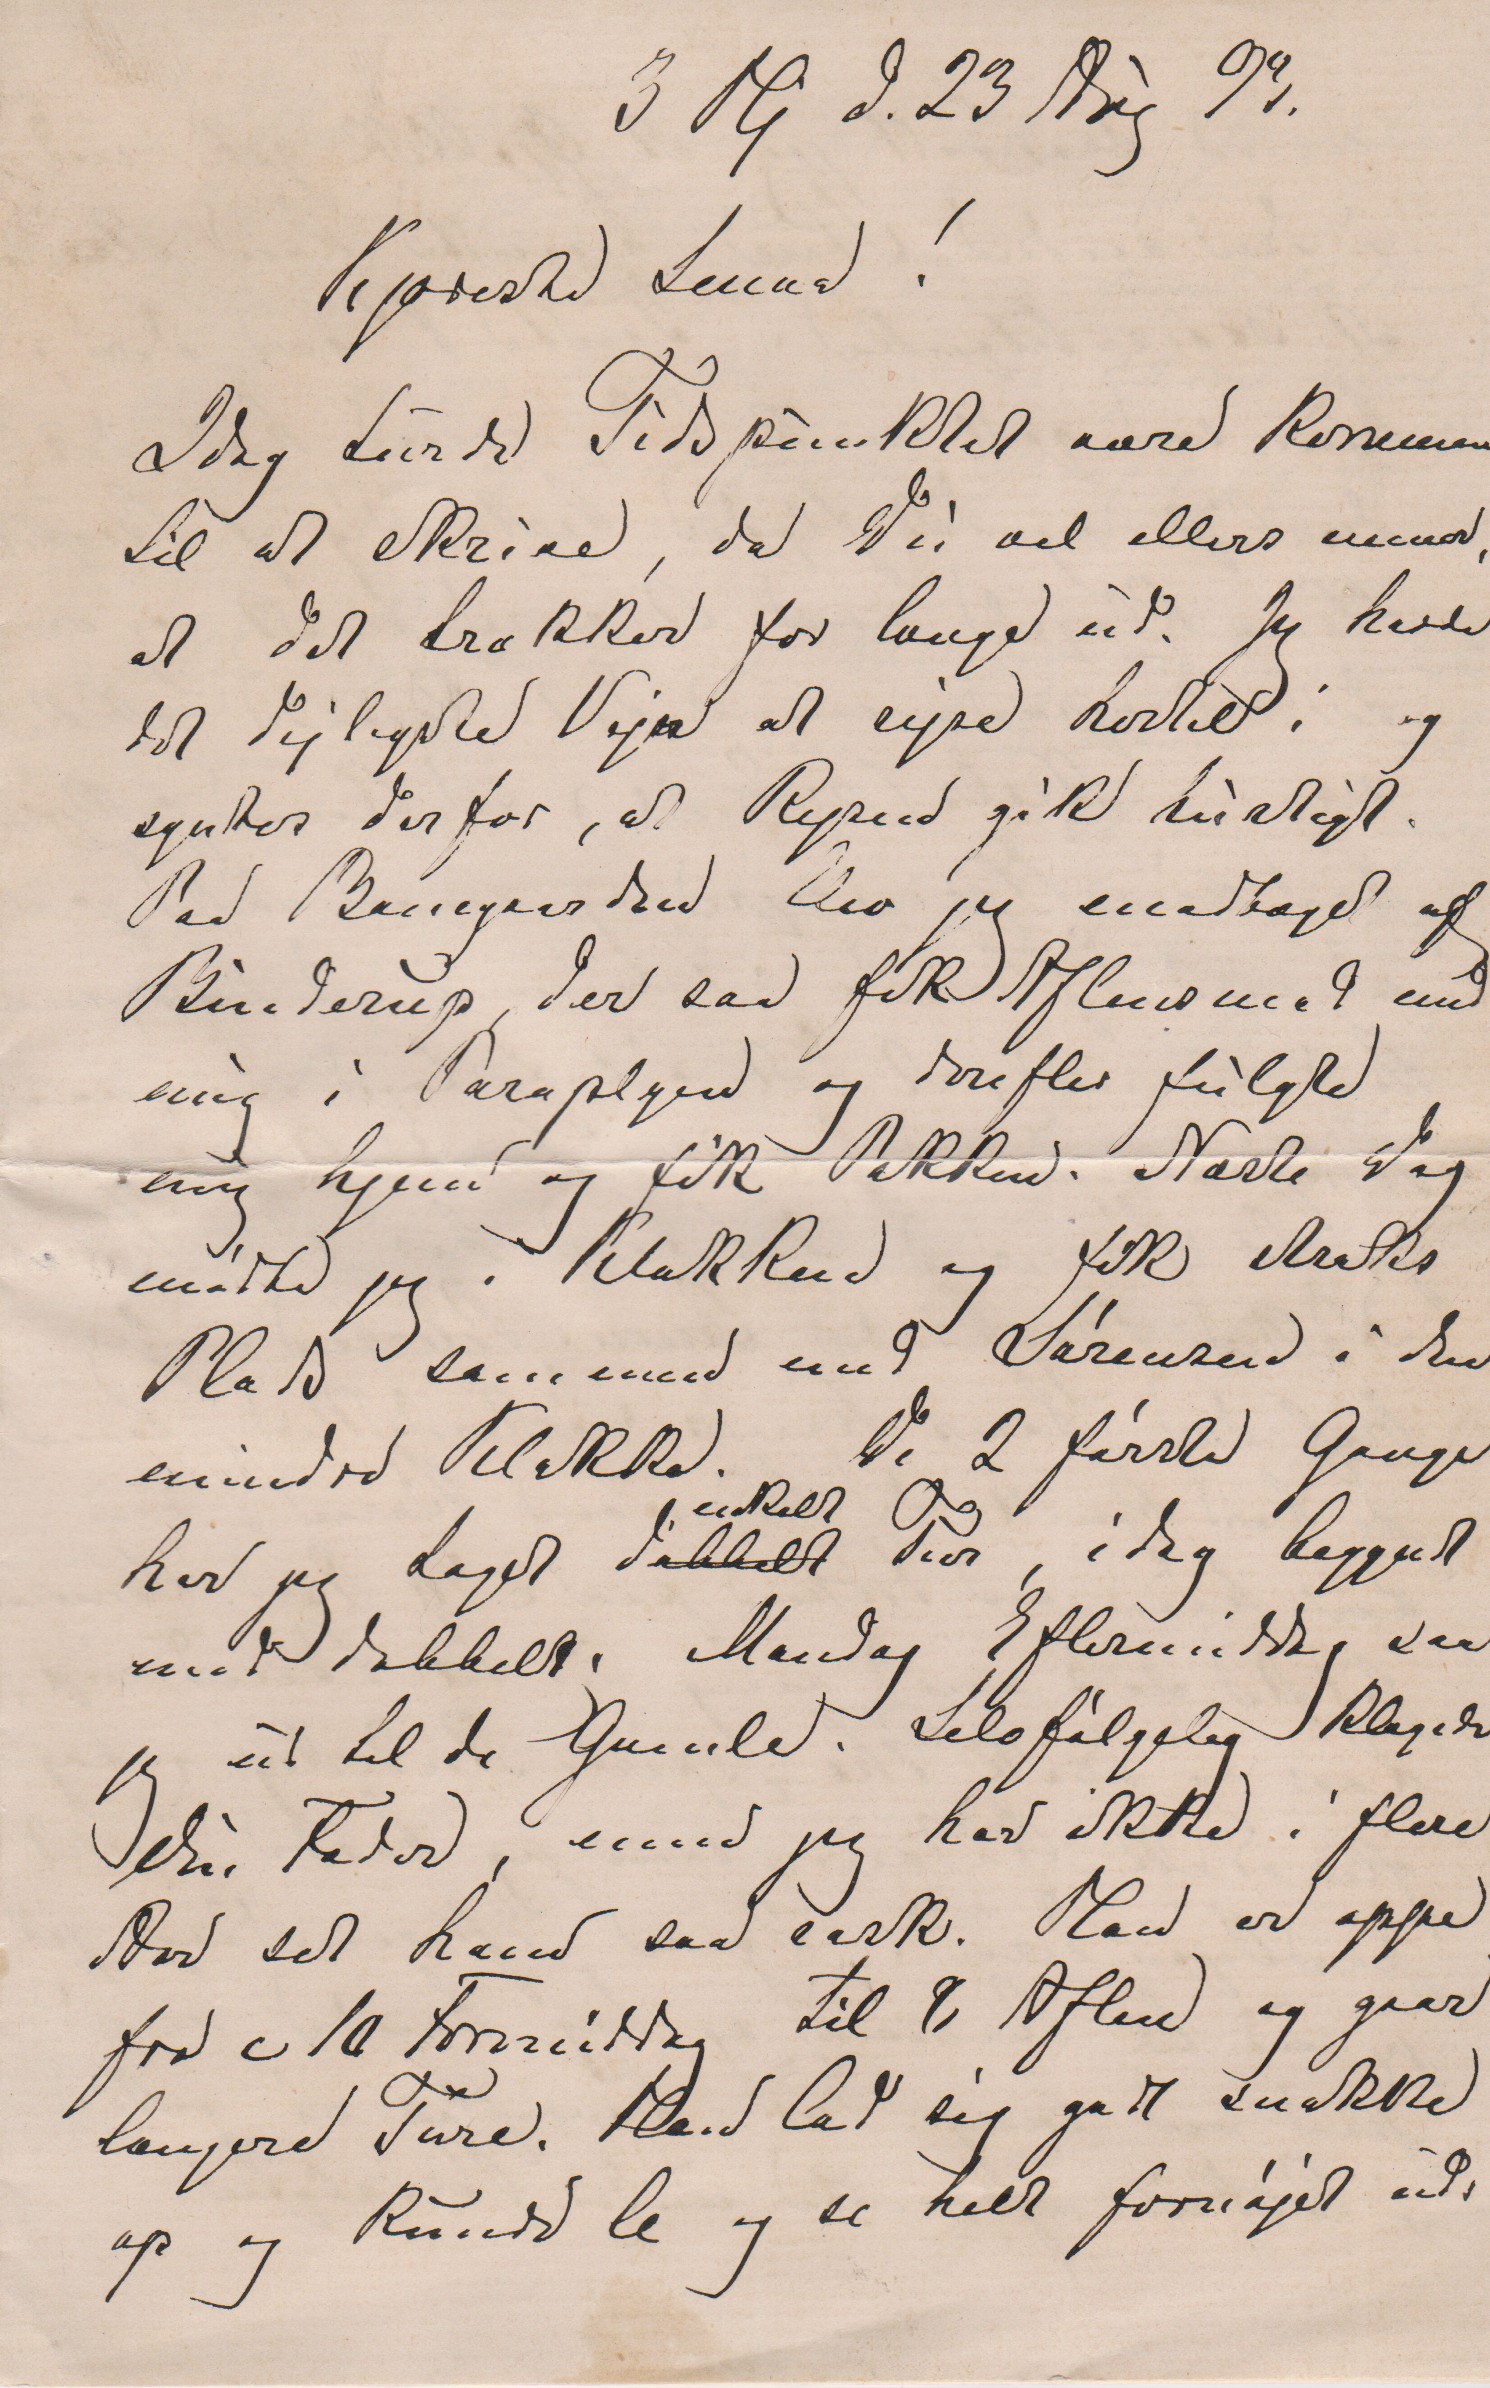 3 Hj d. 23 Aug 93.
Kjæreste Emma!
Idag turde Tidspunktet være kommen
til at skrive, da Du vel ellers mener,
at det trækker for længe ud. Jeg havde
det dejligste Vejr at rejse hertil i og
syntes derfor, at Rejsen gik hurtigt.
Paa Banegaarden blev jeg modtaget af
Binderup, der saa fik Aftensmad med
mig i Paraplyen og derefter fulgte
mig hjem og fik Pakken. Næste Dag
mødte jeg i Klokken og fik straks
Plads sammen med Sørensen i den
mindre Klokke. De 2 første Gange
har jeg taget dobbelt enkelt Tur, idag begyndt
med dobbelt. Mandag Eftermiddag saa
jeg ud til de Gamle. Selvfølgelig klagede
din Fader, men jeg har ikke i flere
Aar set ham saa rask. Han er oppe
fra c 10 Formiddag til 8 Aften og gaar
længere Ture. Han lod sig godt snakke
op og kunde le og se helt fornøjet ud.